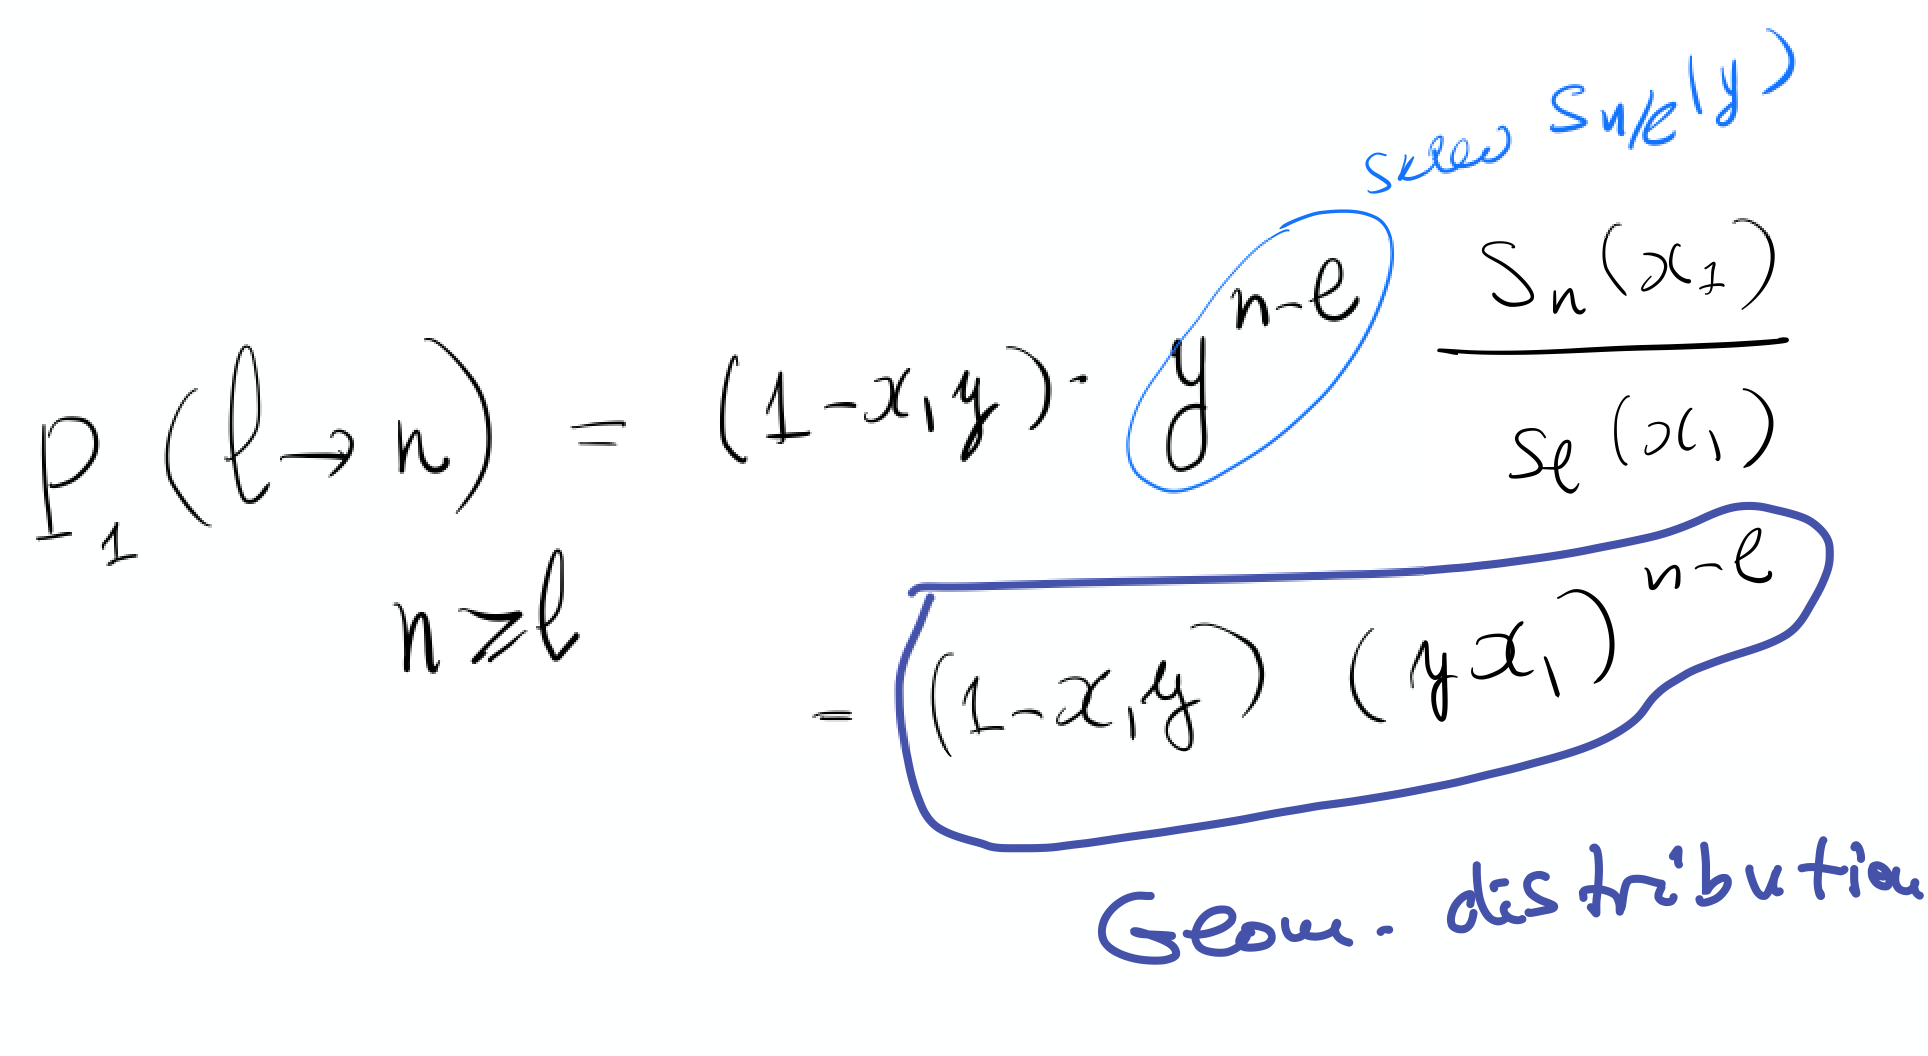 skew S_{n/ℓ}(y)
P_1(ℓ→n) = (1-x_1y)· y^{n-ℓ} \frac{S_n(x_1)}{S_ℓ(x_1)}
n⩾ℓ
= (1-x_1y) (yx_1)^{n-ℓ}
Geom. distribution